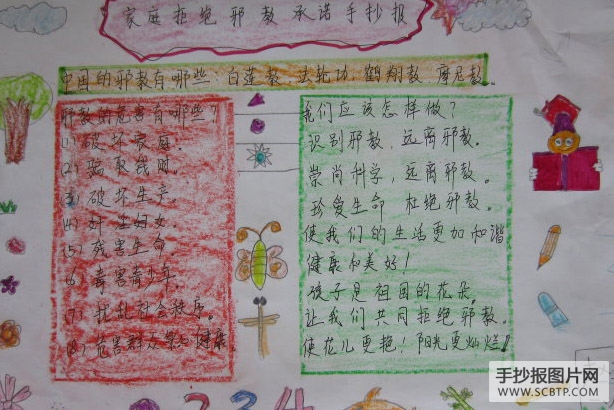 家庭拒绝邪教承诺手抄报
中国的邪教有哪些:白莲教 法轮功 鹤翔教 摩尼教、
邪教的危害有哪些?
(1) 破坏家庭。
(2) 骗取钱财。
(3) 破坏生产。
(4) 奸生妇女。
(5) 残害生命。
(6) 毒害青少年。
(7) 扰乱社会秩序。
(8) 危害群众身心健康。
我们应该怎样做?
识别邪教、远离邪教。
崇尚科学,远离邪教。
珍爱生命 杜绝邪教。
使我们的生活更加和谐
健康和美好!
孩子是祖国的花朵,
让我们共同拒绝邪教。
使花儿更艳!阳光更灿烂!
234
手抄报图片网
WWW.SCBTP.COM